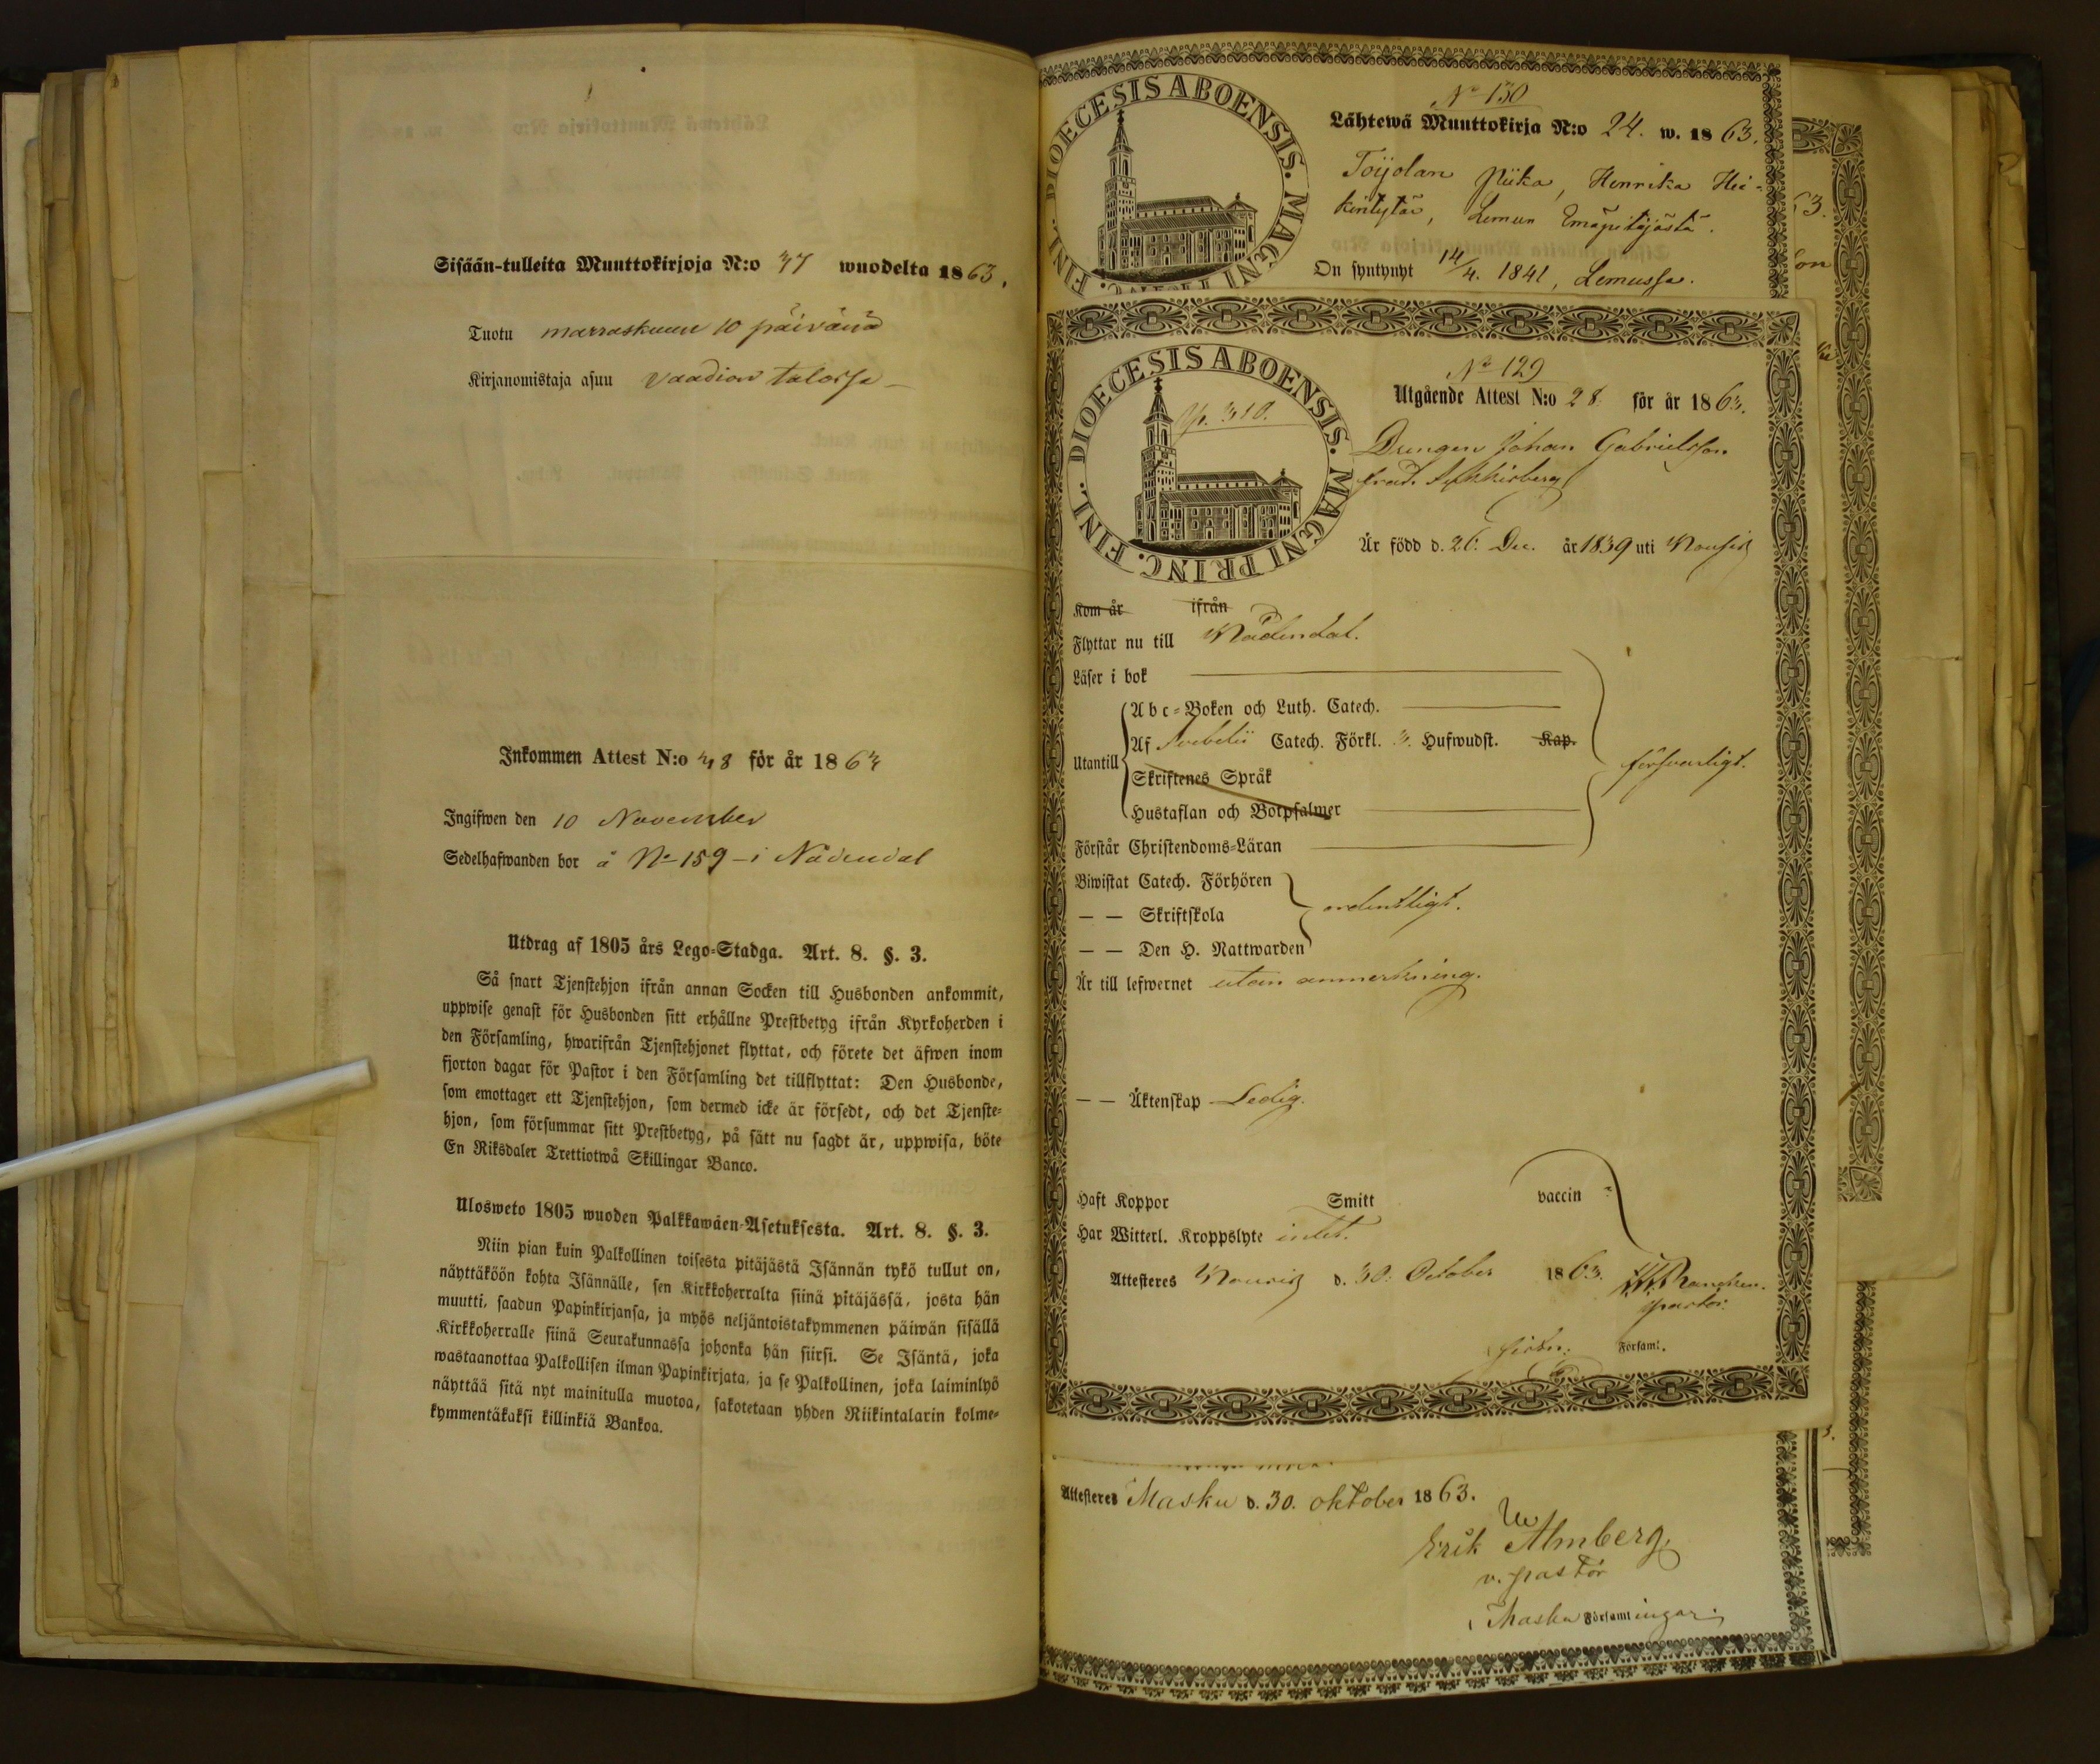 Sisään-tulleita Muuttokirjoja N:o 37 wuodelta 1863.
Tuotu marraskuun 10 päivänä
Kirjanomistaja asuu Vaadion talossa
Inkommen Attest N:o 38 för år 1863
Ingifwen den 10 November
Sedelhafwanden bor å No 159 i Nådendal
Utdrag af 1805 års Lego-Stadga. Art. 8. §. 3.
Så snart Tjenstehjon ifrån annan Socken till Husbonden ankommit,
uppwise genast för Husbonden sitt erhållne Prestbetyg ifrån Kyrkoherden i
den Församling, hwarifrån Tjenstehjonet flyttat, och förete det äfwen inom
fjorton dagar för Pastor i den Församling det tillflyttat: Den Husbonde,
som emottager ett Tjenstehjon, som dermed icke är försedt, och det Tjenste-
hjon, som försummar sitt Prestbetyg, på sätt nu sagdt är, uppwisa, böte
En Riksdaler Trettiotwå Skillingar Banco.
Ulosweto 1805 wuoden Palkkawäen-Asetuksesta. Art. 8. §. 3.
Niin pian kuin Palkollinen toisesta pitäjästä Isännän tykö tullut on,
näyttäköön kohta Isännälle, sen Kirkkoherralta siinä pitäjässä, josta hän
muutti, saadun Papinkirjansa, ja myös neljäntoistakymmenen päiwän sisällä
Kirkkoherralle siinä Seurakunnassa johonka hän siirsi. Se Isäntä, joka
wastaanottaa Palkollisen ilman Papinkirjata, ja se Palkollinen, joka laiminlyö
näyttää sitä nyt mainitulla muotoa, sakotetaan yhden Riikintalarin kolme-
kymmentäkaksi killinkiä Bankoa.
DIOECESIS ABOENSIS. MAGNI PRINC. FINL.
No 130
Lähtewä Muuttokirja N:o 24. w. 1863.
Toijolan piika, Henrika Hei-
kintytär, Lemun Emäpitäjästä.
On syntynyt 14/4. 1841, Lemussa.
DIOECESIS ABOENSIS. MAGNI PRINC. FINL.
p. 310.
No 129
Utgående Attest N:o 28 för år 1863.
Drengen Johan Gabrielsson
Är född d. 26. Dec. år 1839 uti Nousis
Kom år ifrån
Flyttar nu till Nådendal.
Läser i bok
Utantill
Abc-Boken och Luth. Catech.
Af Svebelii Catech. Förkl. 3. Hufwudst. Kap.
Skriftenes Språk
Hustaflan och Botpsalmer
försvarligt.
Förstår Christendoms-Läran
Biwistat Catech. Förhören
— — Skriftskola
ordentligt.
— — Den H. Nattwarden
Är till lefwernet utan anmerkning.
— — Äktenskap Ledig.
Haft Koppor Smitt vaccin
Har Witterl. Kroppslyte intet.
Attesteres Nousis d. 30. October 1863.
pastor.
Församl.
Attesteres Masku d. 30. oktober 1863.
Erik Almberg,
v. pastor
i Masku Församlingar